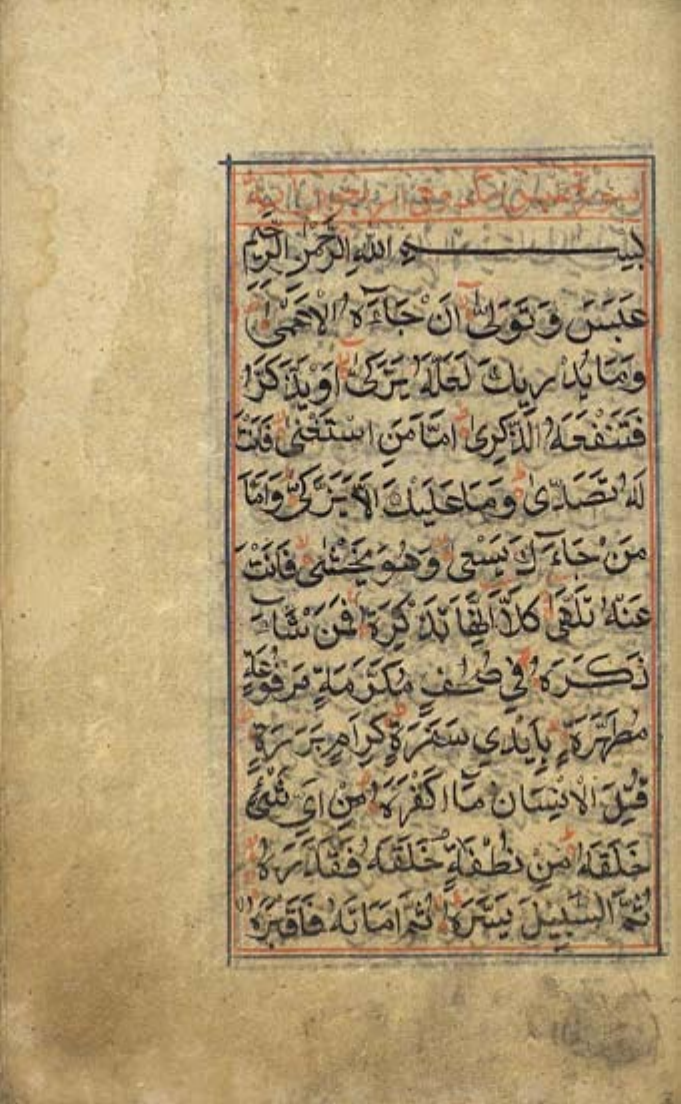 بسم الله الرحمن الرحيم
عَبَسَ وَتَوَلّٰى اَنْ جَاءَهُ الْاَعْمٰى
وَمَا يُدْرِيكَ لَعَلَّهُ يَزَّكّٰى اَوْ يَذَّكَّرُ
فَتَنْفَعَهُ الذِّكْرٰى اَمَّا مَنِ اسْتَغْنٰى فَاَنْتَ
لَهُ تَصَدّٰى وَمَا عَلَيْكَ اَلَّا يَزَّكّٰى وَاَمَّا
مَنْ جَاءَكَ يَسْعٰى وَهُوَ يَخْشٰى فَاَنْتَ
عَنْهُ تَلَهّٰى كَلَّا اِنَّهَا تَذْكِرَةٌ فَمَنْ شَاءَ
ذَكَرَهُ فِي صُحُفٍ مُكَرَّمَةٍ مَرْفُوعَةٍ
مُطَهَّرَةٍ بِاَيْدِي سَفَرَةٍ كِرَامٍ بَرَرَةٍ
قُتِلَ الْاِنْسَانُ مَا اَكْفَرَهُ مِنْ اَيِّ شَيْءٍ
خَلَقَهُ مِنْ نُطْفَةٍ خَلَقَهُ فَقَدَّرَهُ
ثُمَّ السَّبِيلَ يَسَّرَهُ ثُمَّ اَمَاتَهُ فَاَقْبَرَهُ